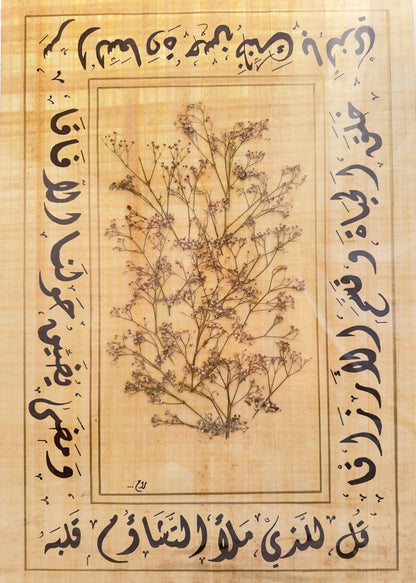 قُل للَّذيْ مَلأَ التَّشَاؤُم قَلبَهُ
وَمَضَى يضَيِّق حَولَنَا الآفَاقَا
سِرُّ السَّعَادَةِ حُسنُ ظَنِّكَ بِالَّذِي
خَلَقَ الحَيَاةَ وَقَسَّمَ الأَرزَاقَا